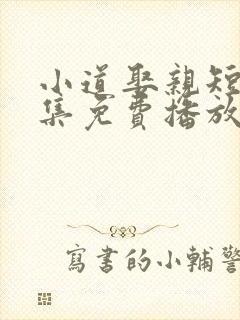 小道娶親短
集免費播放
寫書的小輔警